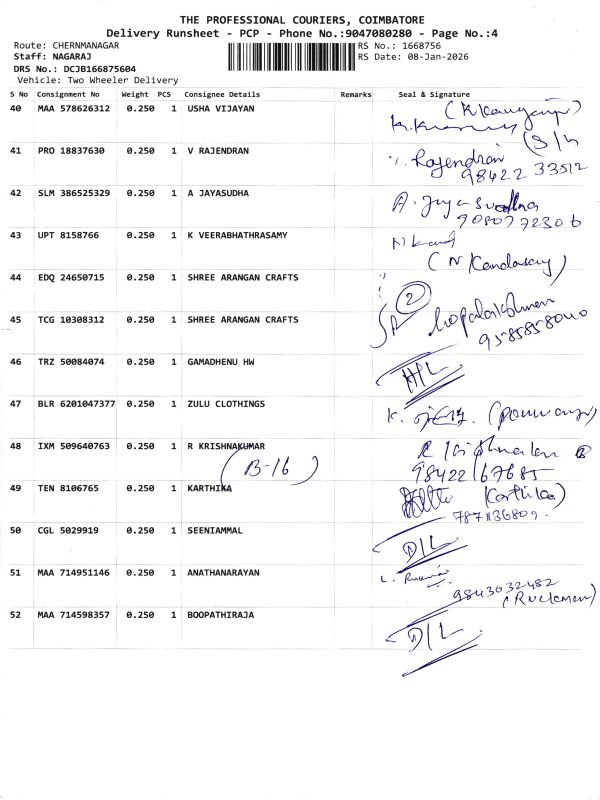 THE PROFESSIONAL COURIERS, COIMBATORE
Delivery Runsheet - PCP - Phone No.:9047080280 - Page No.:4
Route: CHERNMANAGAR RS No.: 1668756
Staff: NAGARAJ RS Date: 08-Jan-2026
DRS No.: DCJB166875604
Vehicle: Two Wheeler Delivery
S No Consignment No Weight PCS Consignee Details Remarks Seal & Signature
40 MAA 578626312 0.250 1 USHA VIJAYAN
41 PRO 18837630 0.250 1 V RAJENDRAN Rajendran
98422 33512
42 SLM 386525329 0.250 1 A JAYASUDHA A. Jayasudha
9080772306
43 UPT 8158766 0.250 1 K VEERABHATHRASAMY
(N Kandasay)
44 EDQ 24650715 0.250 1 SHREE ARANGAN CRAFTS 2
45 TCG 10308312 0.250 1 SHREE ARANGAN CRAFTS Gopalakrishnan
9585858040
46 TRZ 50084074 0.250 1 GAMADHENU HW H/L
47 BLR 6201047377 0.250 1 ZULU CLOTHINGS K.
48 IXM 509640763 0.250 1 R KRISHNAKUMAR
(B-16) 98422 67685
49 TEN 8106765 0.250 1 KARTHIKA (Karthika)
7871136809.
50 CGL 5029919 0.250 1 SEENIAMMAL D/L
51 MAA 714951146 0.250 1 ANATHANARAYAN L.
9843032482
52 MAA 714598357 0.250 1 BOOPATHIRAJA D/L